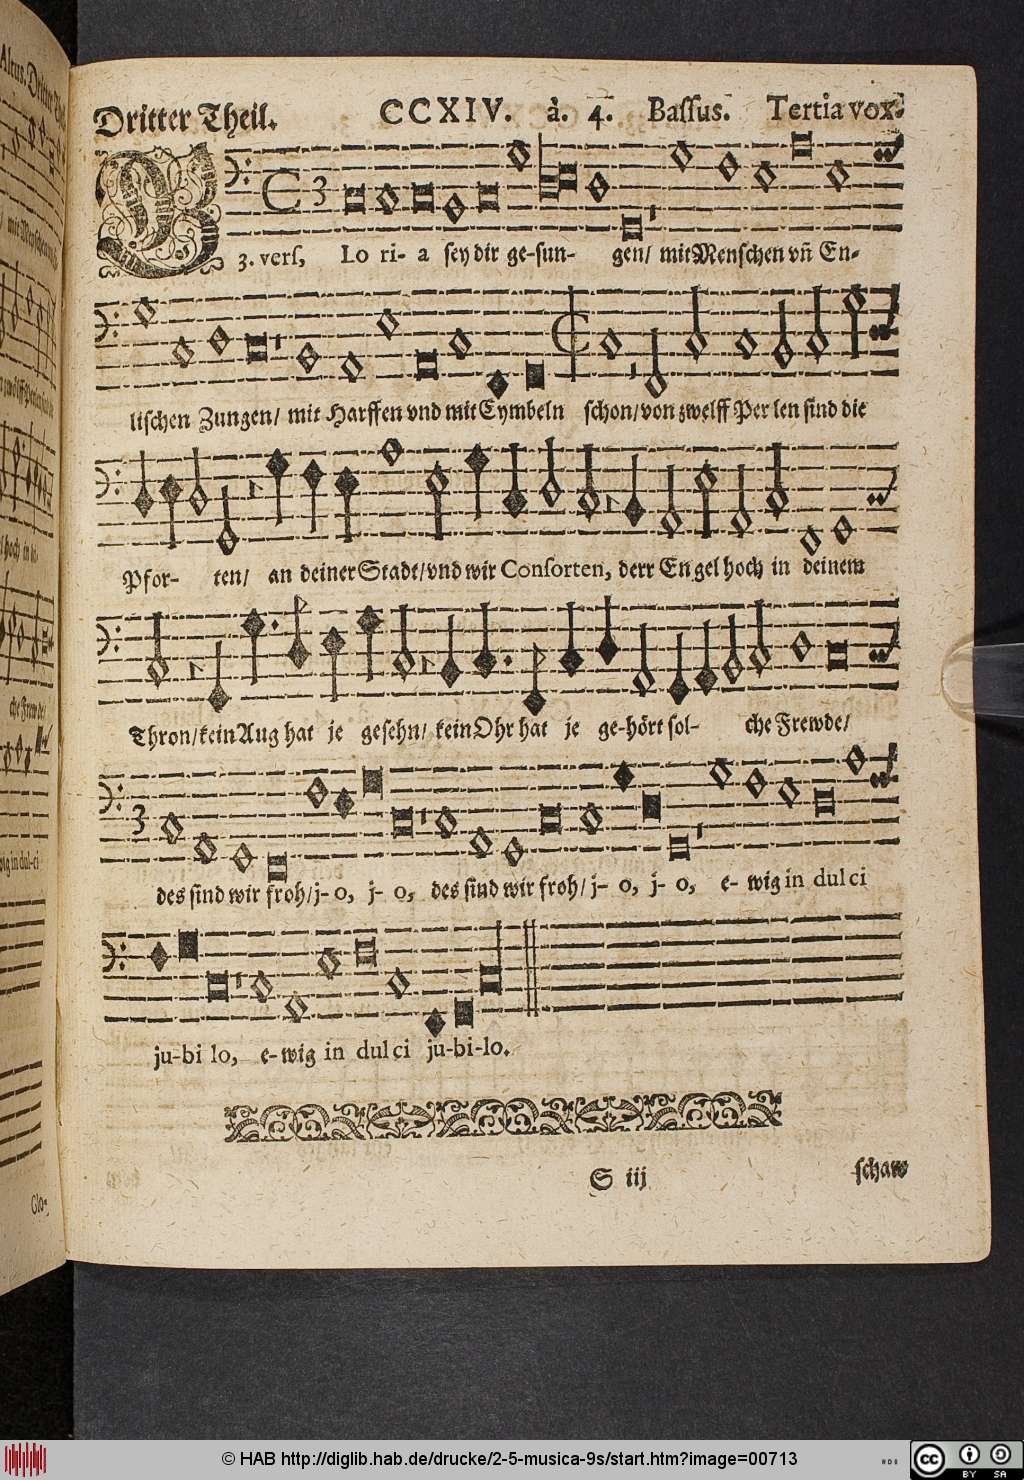 Dritter Theil. CCXIV. à. 4. Bassus. Tertia vox.
G
3. vers, Lo ri- a sey dir ge-sun- gen/ mit Menschen vñ En-
lischen Zungen/ mit Harffen vnd mit Cymbeln schon/ von zwelff Per len sind die
Pfor- ten/ an deiner Stadt/ vnd wir Consorten, derr En gel hoch in deinem
Thron/ kein Aug hat je gesehn/ kein Ohr hat je ge-hört sol- che Frewde/
des sind wir froh/ j- o, j- o, des sind wir froh/ j- o, j- o, e- wig in dul ci
ju-bi lo, e- wig in dul ci ju-bi-lo.
S iij
schaw
Altus. Dritter
Glo-
© HAB http://diglib.hab.de/drucke/2-5-musica-9s/start.htm?image=00713
cc BY SA